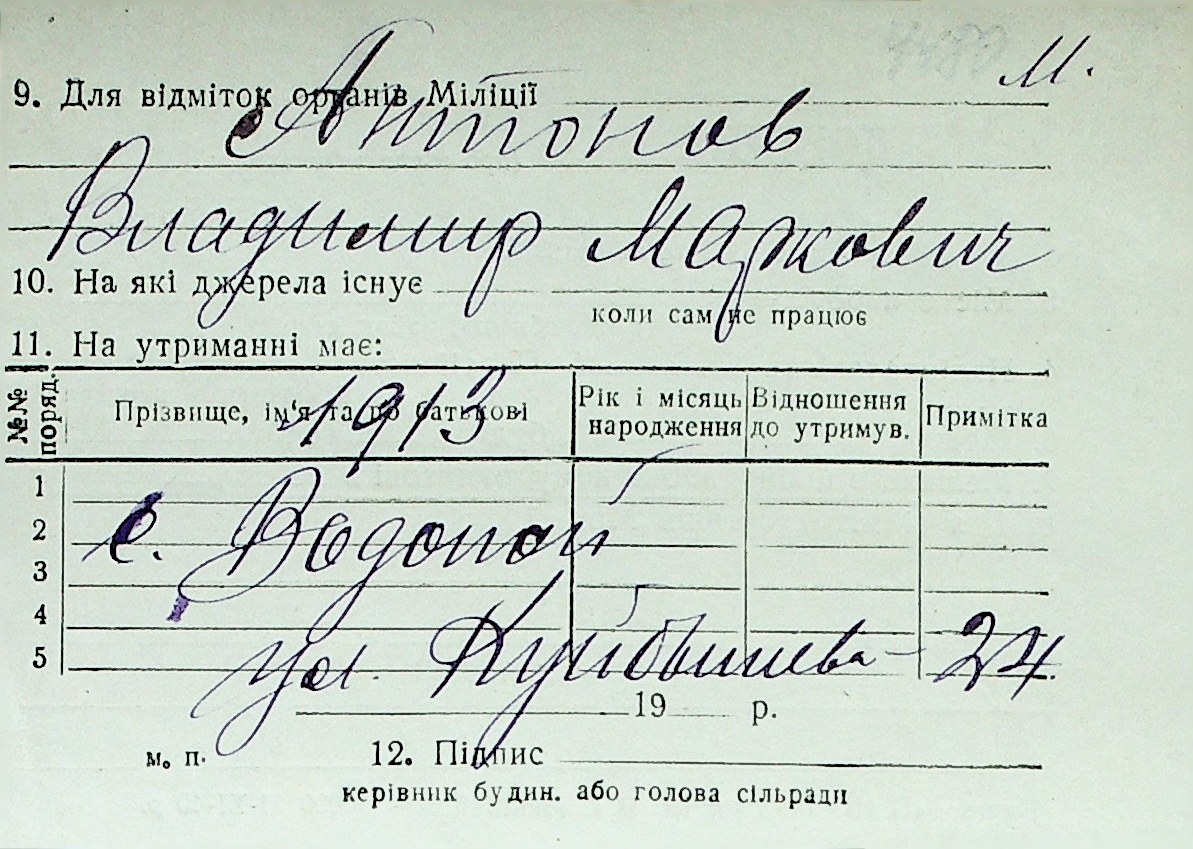 М.
9. Для відміток органів Міліції
Антонов
Владимир Маркович
10. На які джерела існує
коли сам не працює
11. На утриманні має:
№№ поряд.
Прізвище, ім'я та по батькові
Рік і місяць народження
Відношення до утримув.
Примітка
1913
1
2
с. Водопой
3
4
5
ул. Куйбышева - 24.
19 р.
м. п. 12. Підпис
керівник будин. або голова сільради